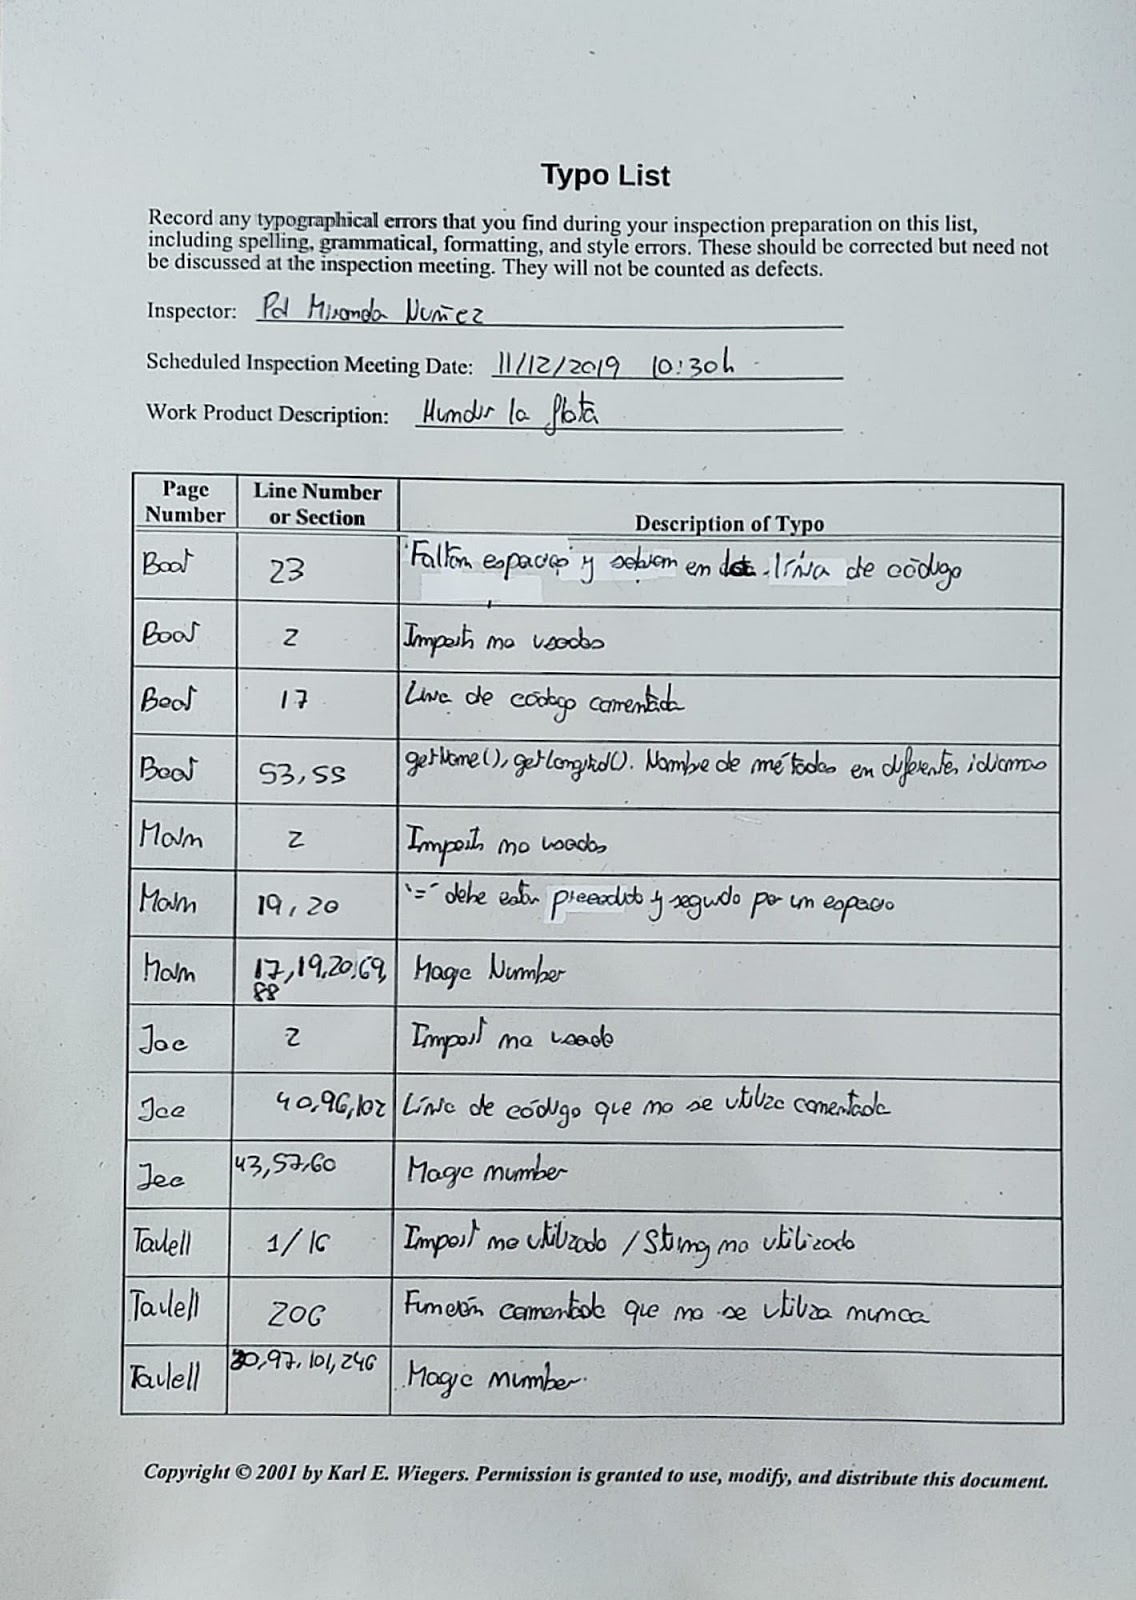 Typo List
Record any typographical errors that you find during your inspection preparation on this list,
including spelling, grammatical, formatting, and style errors. These should be corrected but need not
be discussed at the inspection meeting. They will not be counted as defects.
Inspector: Pol Miranda Nuñez
Scheduled Inspection Meeting Date: 11/12/2019 10:30h
Work Product Description: Hundir la flota
Page Number | Line Number or Section | Description of Typo
Boat | 23 | Faltan espacios y sobran en línia de código
Boat | 2 | Imports no usados
Boat | 17 | Linea de código comentada
Boat | 53, 55 | getNome(), getLongitud(). Nombre de métodos en diferentes idiomas
Main | 2 | Imports no usados
Main | 19, 20 | '=' debe estar precedido y seguido por un espacio
Main | 17, 19, 20, 69, 88 | Magic Number
Joc | 2 | Import no usado
Joc | 40, 96, 102 | Línia de código que no se utiliza comentada
Joc | 43, 57, 60 | Magic number
Taulell | 1/16 | Import no utilizado / String no utilizado
Taulell | 206 | Función comentada que no se utiliza nunca
Taulell | 30, 97, 101, 246 | Magic number
Copyright © 2001 by Karl E. Wiegers. Permission is granted to use, modify, and distribute this document.